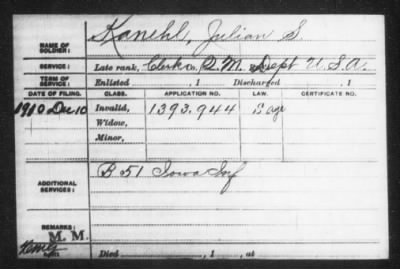 Kanehl, Julian S.
NAME OF SOLDIER:
SERVICE: Late rank, Clerk Co. Q.M. Dept U.S.A.
TERM OF SERVICE: Enlisted , 1 Discharged , 1
DATE OF FILING. CLASS. APPLICATION NO. LAW. CERTIFICATE NO.
1910 Dec 10 Invalid, 1393.944
Widow,
Minor,
ADDITIONAL SERVICES: B 51 Iowa Inf
REMARKS:
M. M.
Died , 1 , at